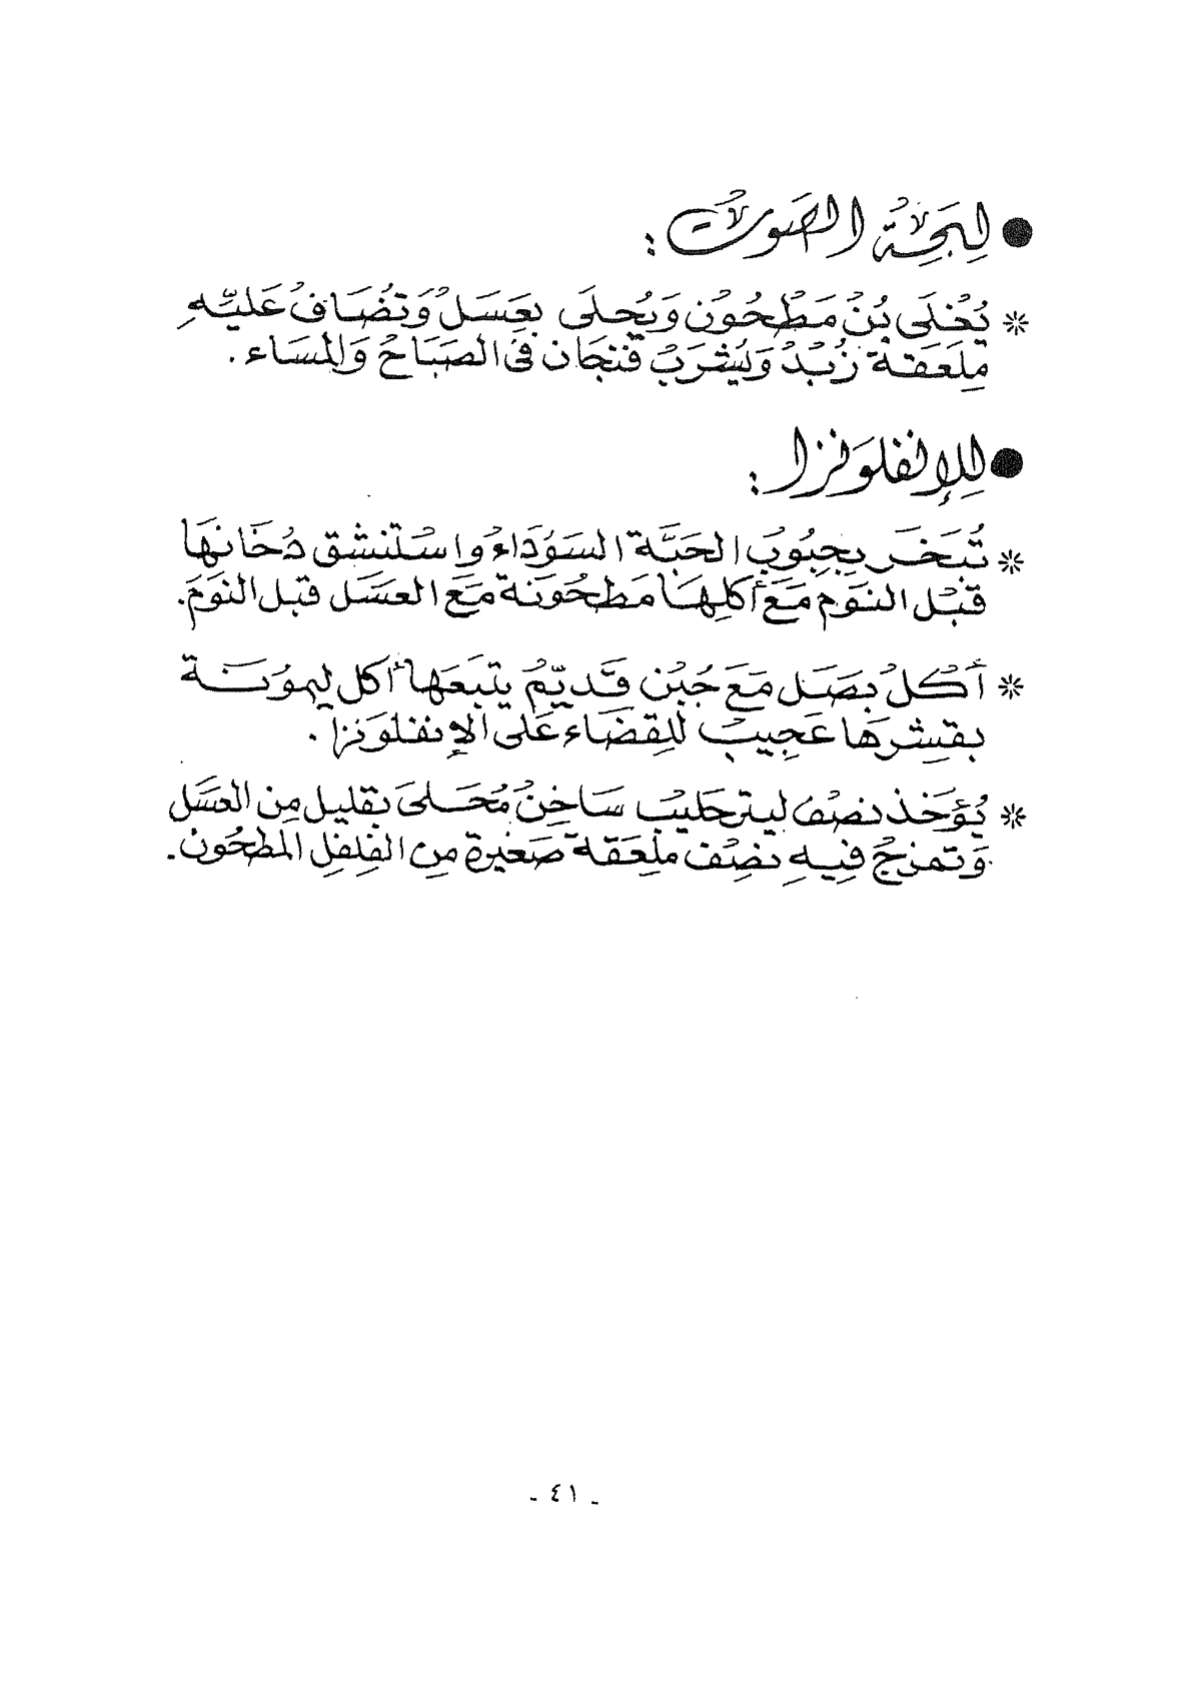 ● لِبَحَّةِ الصَّوت :
* يُغْلَى بُنْ مَطْحُوْن وَيُحلَى بعَسَلْ وَتضَافُ عَليّهِ
مِلعَقة زُبْدْ وَيُشْرَبْ فنجَان فىَ الصَبَاحْ وَالمسَاء .
● لِلإنفلوَنزا :
* تُبَخَر بِحِبُوبْ الحَبَّة السَوْدَاءْ واسْتنشق دُخَانهَا
قبْل النوَم مَعَ أكلِهَا مَطحُوَنة مَعَ العسَل قبل النوَمَ.
* أَكْلُ بصَل مَعَ جُبْن قَديّمْ يتبَعَها أكل ليموُنَة
بقشرهَا عَجِيبْ للِقضَاء عَلى الإنفلوَنزا .
* يُؤخَذ نصْف ليتر حَليب سَاخِنْ مُحَلىَ بقليل مِن العسَل
وَتمزجُ فيهِ نصْف ملعَقة صَغيرة مِن الفِلفِل المطحُون.
- ٤١ -